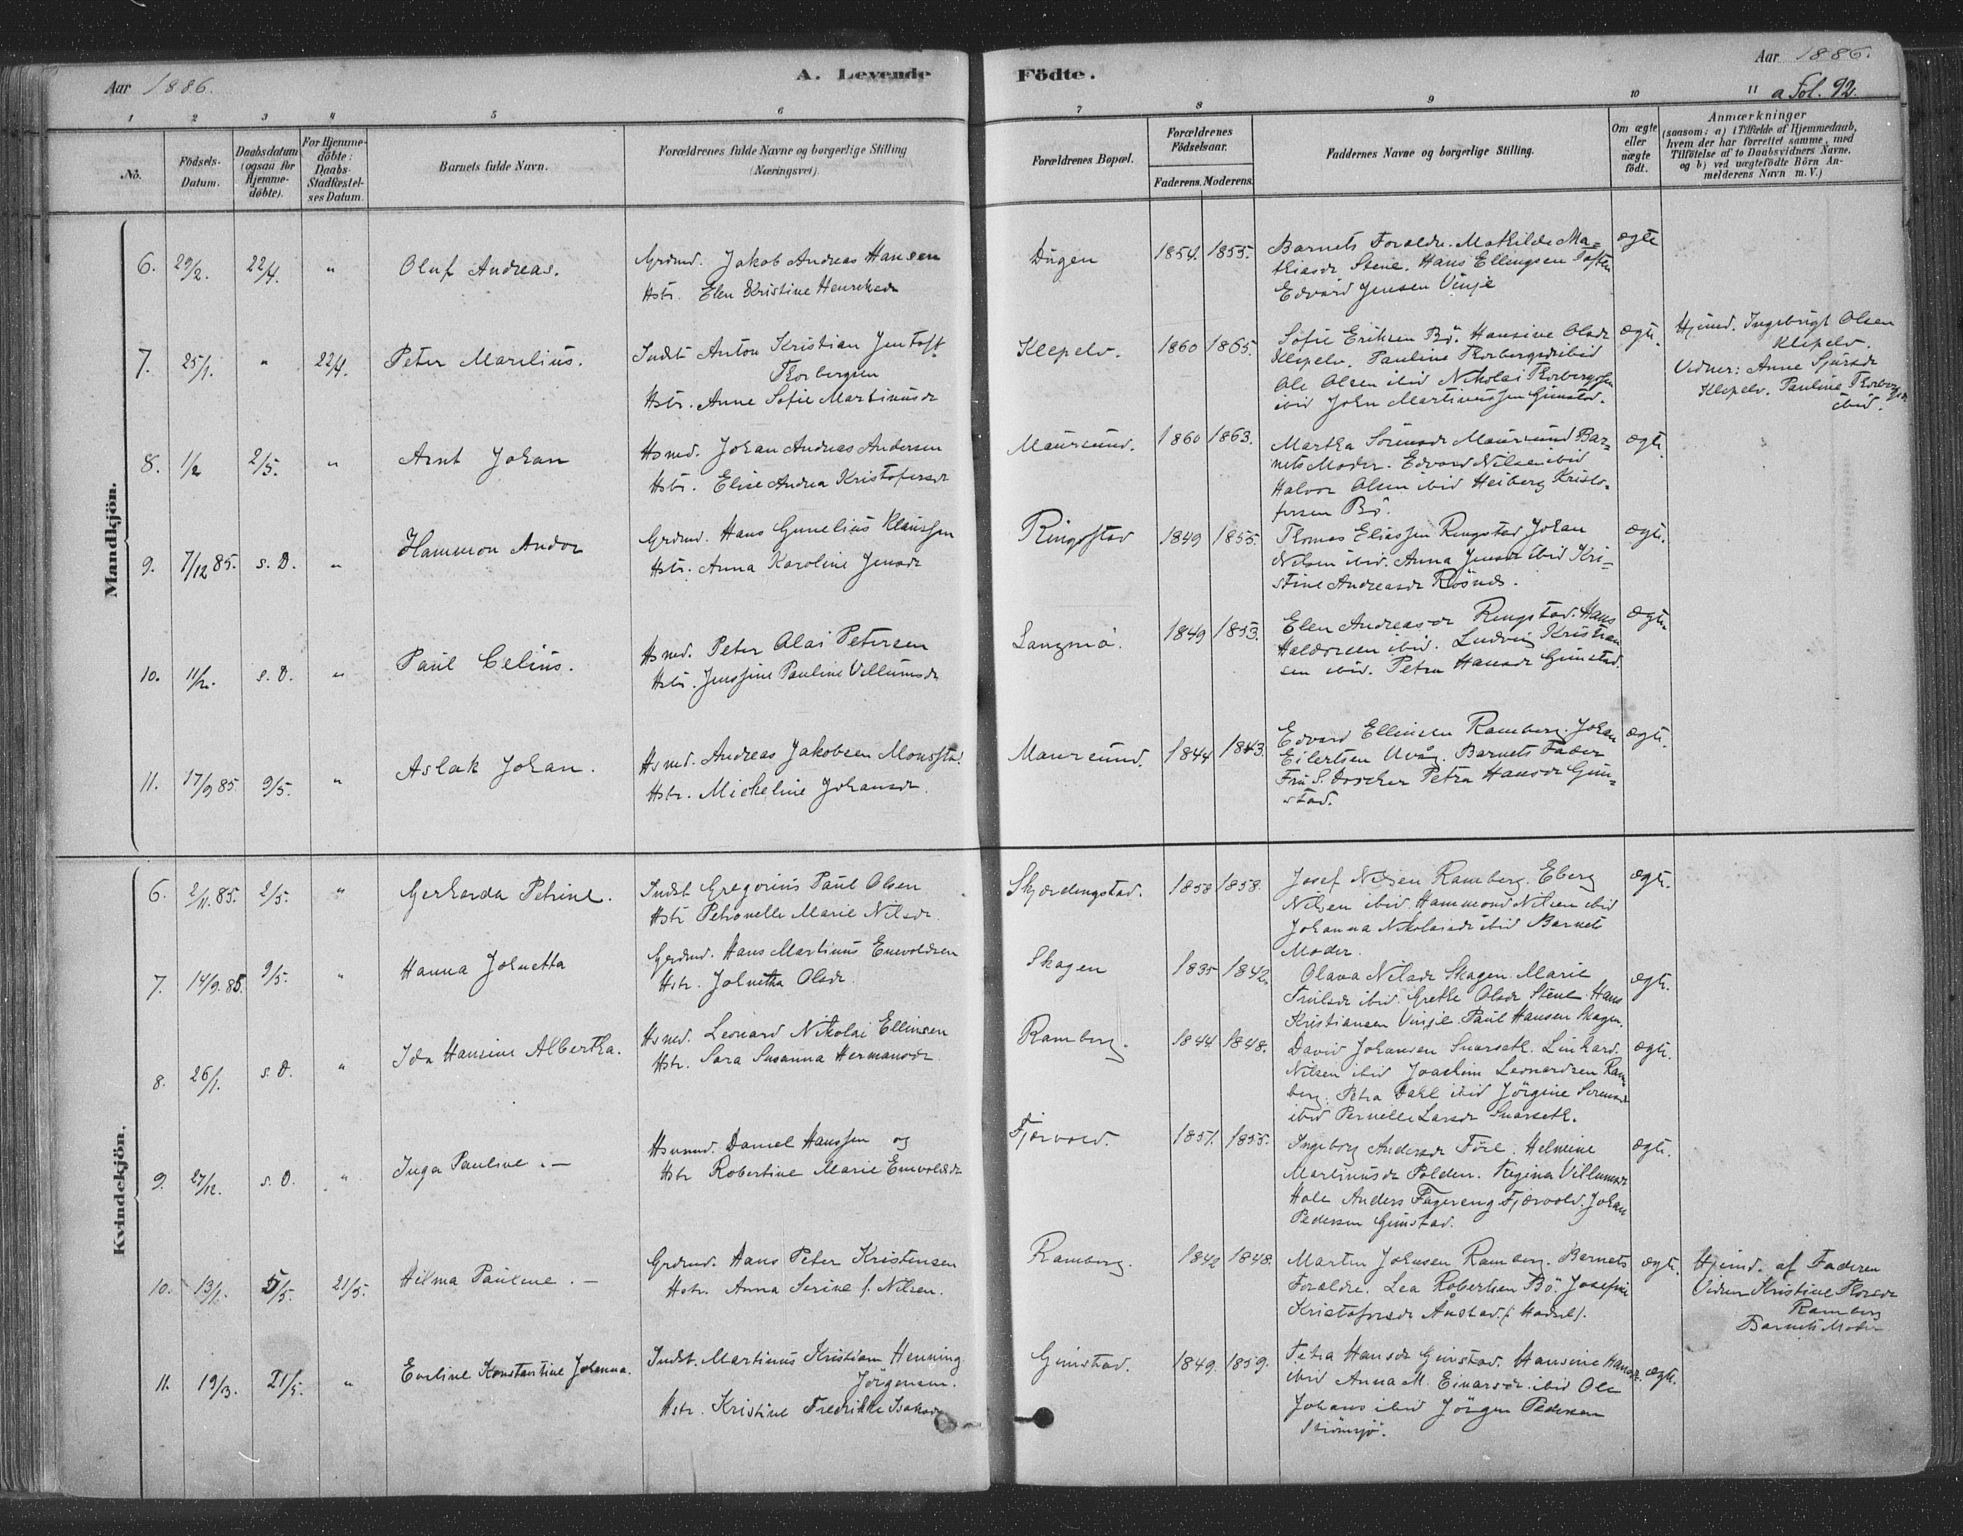 Aar 1886.
A. Levende
Födte.
Aar 1886.
a Fol. 92.
1 2 3 4 5 6 7 8 9 10 11
No.
Födsels-
Datum.
Daabsdatum
(ogsaa for
Hjemme-
döbte).
For Hjemme-
döbte:
Daabs-
Stadfæstel-
ses Datum.
Barnets fulde Navn.
Forældrenes fulde Navne og borgerlige Stilling
(Næringsvei).
Forældrenes Bopæl.
Forældrenes
Födselsaar.
Faderens. Moderens.
Faddernes Navne og borgerlige Stilling.
Om ægte
eller
uægte
födt.
Anmærkninger
(saasom: a) i Tilfælde af Hjemmedaab,
hvem der har forrettet samme, med
Tilföielse af to Daabsvidners Navne,
og b) ved uægtefödte Börn An-
melderens Navn m. V.)
Mandkjön.
6. 22/4. " Oluf Andreas.
Grdmd. Jakob Andreas Hansen
Hstr. Elen Kristine
1854. 1855.
Barnets Foraldre. Mathilde Ma-
thiasdr Stene. Hans Ellingsen
Edvard Jensen Vinje
ægte
7. 25/1. " 22/4. Peter Marelius.
Indst Anton Kristian Jentoft
Thorbergsen
Hstr. Anne Sofie Martinusdr
Klepelv. 1860 1865.
Sofie Eriksen Bö. Hansine Olsdr
Klepelv. Pauline Thorbergsdr ibid
Ole Olsen ibid Nikolai Thorbergssen
ibid John Martinussen Gimstad.
ægte.
Hjmd. Ingebrigt Olsen
Klepelv.
Vidner: Anne Sjursdr
Klepelv. Pauline Thorbergsdr
ibid.
8. 1/2 2/5. " Arnt Johan
Hsmd. Johan Andreas Andersen
Hstr. Elise Andrea Kristofersdr
Maursund. 1860 1863.
Martha Sörensdr Maursund Bar-
nets Moder. Edvard Nilsen ibid
Halvor Olsen ibid Heiberg Kristo-
fersen Bö.
ægte.
9. 7/12 85. s. D. " Hammon Andor
Grdmd. Hans Gunelius Klaussen
Hstr. Anna Karoline Jensdr
Ringstad 1849 1855.
Thomas Eliassen Ringstad Johan
Nilsen ibid. Anna Jensdr ibid Kri-
stine Andreasdr
ægte.
10. s. D. " Paul Celius.
Hsmd. Peter Olai Petersen
Hstr. Jensine Pauline Villumsdr
Langmo. 1849 1853.
Elen Andreasdr Ringstad. Hans
Haldorsen ibid. Ludvig Kristian
sen ibid. Petra Hansdr Gimstad.
ægte
11. 17/9 85. 9/5. " Aslak Johan.
Hsmd. Andreas Jakobsen
Hstr. Micheline Johansdr.
Maursund. 1844 1843.
Edvard Ellinsen Ramberg. Johan
Eilertsen Uvåg. Barnets Fader
Fru S. Petra Hansdr Gim-
stad.
ægte.
Kvindekjön.
6. 2/11. 85. 2/5. " Gerharda Petrine.
Indst Gregorius Paul Olsen
Hstr Petronelle Marie Nilsdr.
Skjærdingstad. 1858 1858.
Josef Nilsen Ramberg. Eberg
Nilsen ibid. Hammond Nilsen ibid
Johanna Nikolaisdr ibid Barnets
Moder.
ægte.
7. 14/9. 85. 9/5. " Hanna Johnetta
Gerdmd. Hans Martinus Enevoldsen
Hstr. Johnetha Olsdr.
Skagen 1835 1842.
Olava Nilsdr Skagen. Marie
ibid. Grethe Olsdr Stene. Hans
Kristiansen Vinje. Paul Hansen Skagen.
ægte.
8. 26/1. s. D. " Ida Hansine Albertha.
Hsmd. Leonard Nikolai Ellinsen
Hstr. Sara Susanna Hermansdr
Ramberg. 1844 1848.
David Johansen Snarseth. Linhard
Nilsen ibid Joachim Leonardsen Ram-
berg. Petra Dahl ibid Jörgine Sörensdr
ibid Pernelle Larsdr Snarseth.
ægte.
9. 27/12. s. D. " Inga Pauline. —
Hsmd. Daniel Hanssen og
Hstr Robertine Marie Enevoldsdr
Fjærvold. 1851. 1855.
Ingeborg Andersdr Före. Helmine
Martinusdr Polden. Regina Villumsdr
Hole Anders Fagereng Fjærvold. Johan
Pedersen Gimstad.
ægte.
10. 13/1. 5/5. 21/5. Hilma Pauline. —
Grdmd. Hans Peter Kristensen
Hstr. Anna Serine f. Nilsen.
Ramberg. 1842 1848.
Martin Johnsen Ramberg. Barnets
Foraldre. Lea Robertsen Bö Josefine
Kristofersdr Ånstad (Hadsel).
ægte.
Hjmd. af Faderen
Vidner Kristine
Ramberg
Barnets Moder
11. 19/3. 21/5. " Eveline Konstantine Johanna.
Indst. Martinus Kristian Henning
Jörgensen.
Hstr. Kristine Fredrikke Isaksdr
Gimstad. 1849. 1859.
Petra Hansdr Gimstad. Hansine Hansdr
ibid Anna M. Einarsdr. ibid Ole
Johans ibid Jörgen Pedersen
Strömsjö.
ægte.